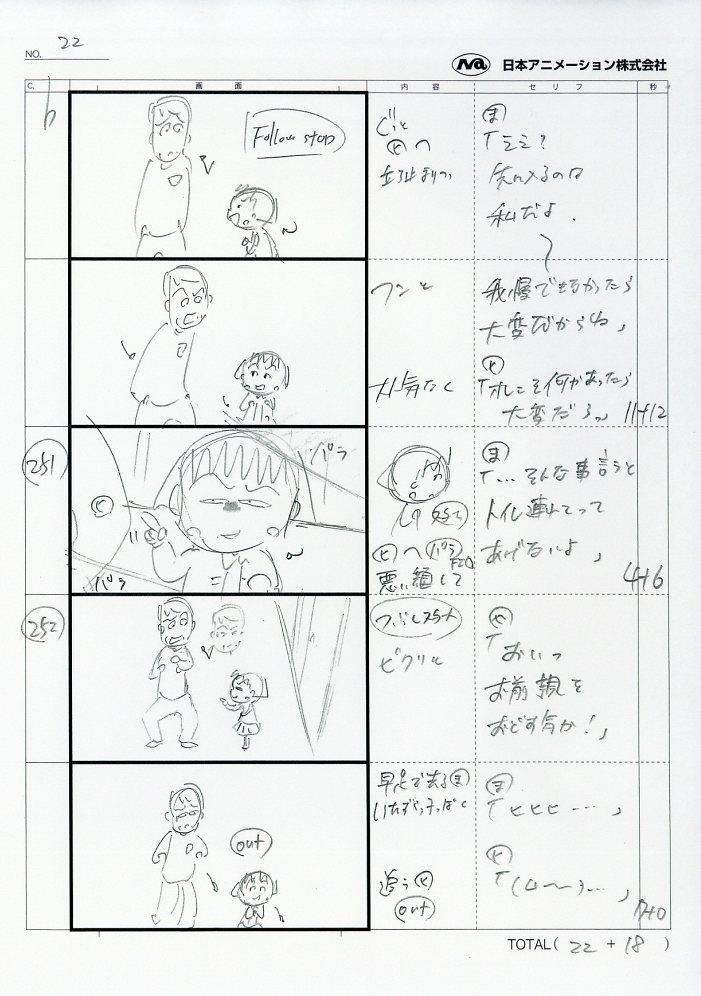 NO. 22
日本アニメーション株式会社
C. 画面 内容 セリフ 秒
Follow stop
ま
「ミミ?
先に入るのは
私だよ.
立ち止まりつつ
フンと
我慢できなかったら
大変だからね」
大人気なく
「オレこそ何かあったら
大変だろっ」 11+12
251
パラ
パラ
ま
「…そんな事言うと
トイレ連れてって
あげないよ」
パラ
悪い顔して
4+6
252
つぶしスタート
ビクリと
「おいっ
お前親を
おどす気か!」
早足で去るま
いたずらっ子っぽく
ま
「ヒヒヒ…」
out
追う
out
TOTAL( 22 + 18 )